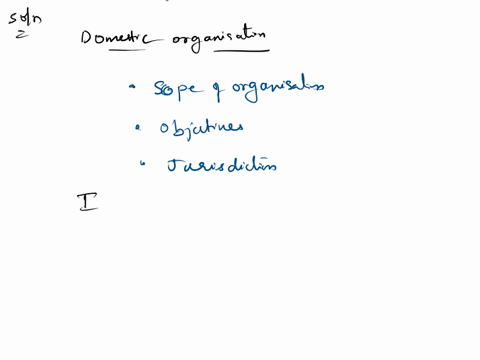 Soln
Domestic organisation
• Sope of organisations
• Objectives
• Jurisdiction
I